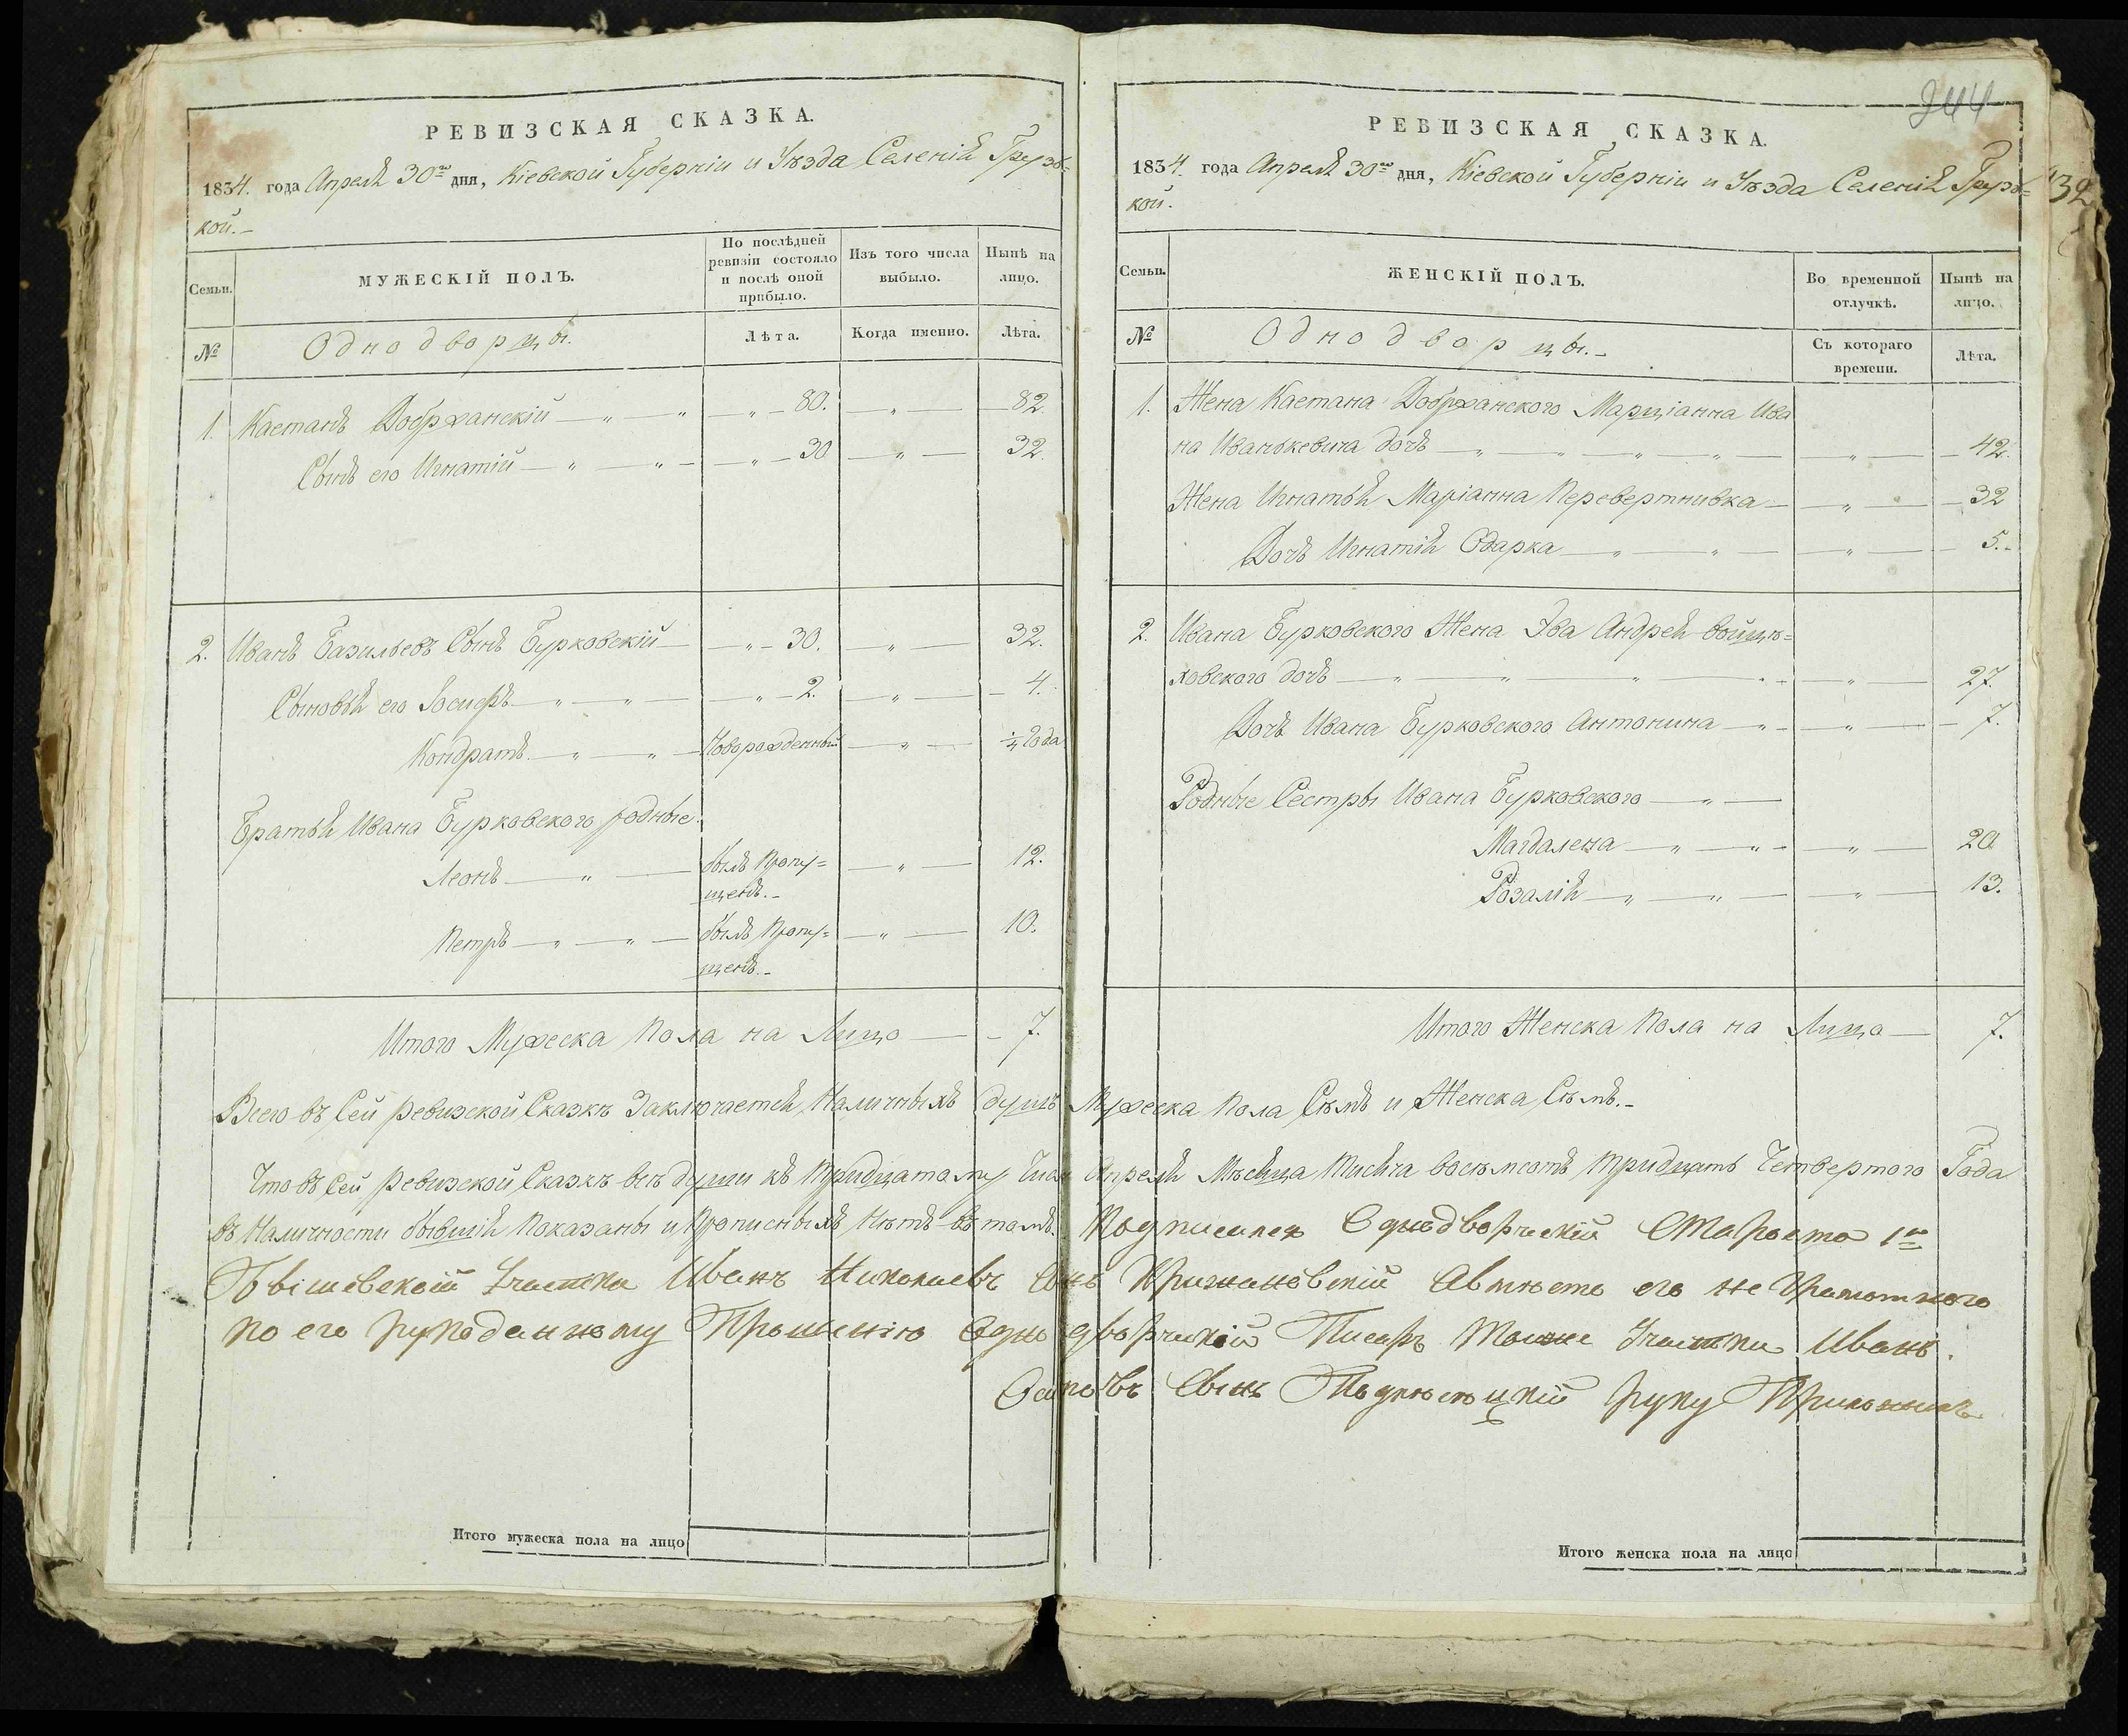 РЕВИЗСКАЯ СКАЗКА.
1834. года Апреля 30го дня, Кіевской Губерніи и Уѣзда Селенія Грузь=
кой.-
Семьи.
МУЖЕСКІЙ ПОЛЪ.
По послѣдней
ревизіи состояло
и послѣ оной
прибыло.
Изъ того числа
выбыло.
Нынѣ на
лицо.
№
Однодворцы.
Лѣта.
Когда именно.
Лѣта.
1. Каетанъ Добржанскій — „ — „ — „ — 80. — „ — 82.
Сынъ его Игнатій — „ — „ — „ — 30 — „ — 32.
2. Иванъ Базильевъ Сынъ Бурковскій — „ — 30. — „ — 32.
Сыновья его Іосифъ — „ — „ — „ — 2. — „ — 4.
Кондратъ — „ — „ — Новорожденный — „ — ¼ Года
Братья Ивана Бурковского родные.
Леонъ — „ — былъ Пропу= — „ — 12.
щенъ.-
Петръ — „ — „ — былъ Пропу= — „ — 10.
щенъ.-
Итого Мужеска Пола на Лицо — 7.
Итого мужеска пола на лицо
244
РЕВИЗСКАЯ СКАЗКА.
1834. года Апреля 30го дня, Кіевской Губерніи и Уѣзда Селенія Грузь=
кой.
32
Семьи.
ЖЕНСКІЙ ПОЛЪ.
Во временной
отлучкѣ.
Нынѣ на
лицо.
№
Однодворцы.-
Съ котораго
времени.
Лѣта.
1. Жена Каетана Добржанского Марціанна Ива
на Иванькевича дочь — „ — „ — „ — „ — „ — 42.
Жена Игнатья Маріанна Перевертнивка — „ — 32
Дочь Игнатія Одарка — „ — „ — „ — 5.-
2. Ивана Бурковского Жена Эва Андрея Войцѣ=
ховского дочь — „ — „ — „ — „ — 27.
Дочь Ивана Бурковского Антонина — „ — „ — 7.
Родные Сестры Ивана Бурковского — „ —
Магдалена — „ — „ — „ — 20
Розалія — „ — „ — „ — 13.
Итого Женска Пола на Лицо — 7.
Всего въ Сей Ревизской Сказкѣ Заключается Наличныхъ душъ Мужеска Пола Сѣмъ и Женска Сѣмъ.-
Что въ Сей Ревизской Сказкѣ всѣ души къ Тридцатому Числу Апреля Мѣсяца Тисяча восѣмсотъ тридцать Четвертого Года
въ Наличности бывшія Показаны и Прописныхъ Нѣтъ въ томъ. Подписался Однодворческій Староста 1го
Участка Иванъ Николаевъ Сынъ Крижановскій Авмѣсто его не Грамотного
по его рукоданному Прошенію Однодворческій Писарь Тогоже Участка Иванъ
Осиповъ Сынъ руку Приложилъ
Итого женска пола на лицо